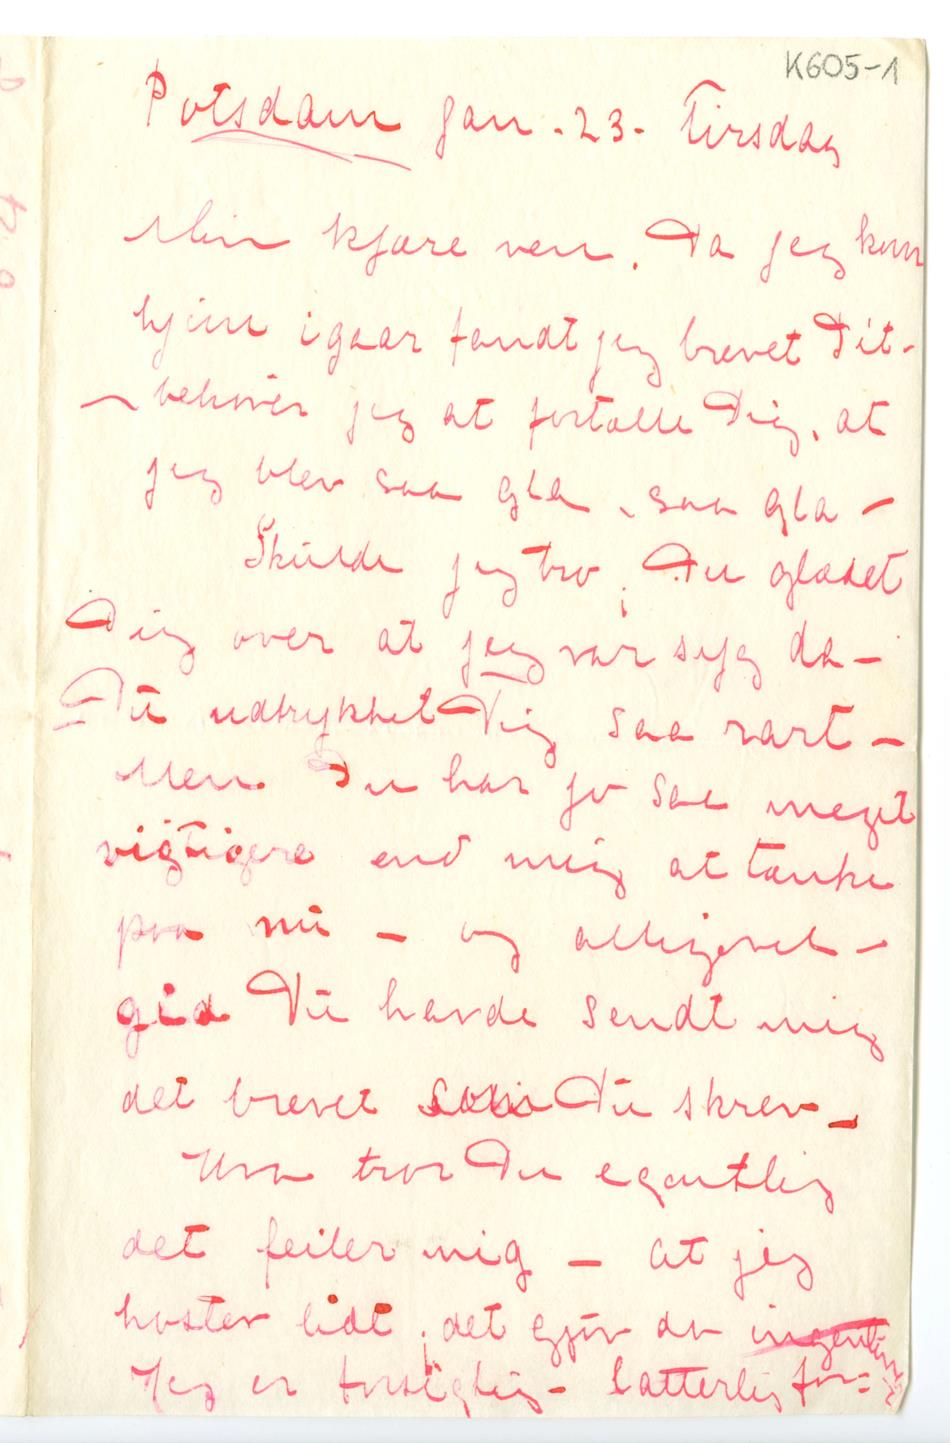 K605-1
Potsdam Jan. 23. Tirsdag
Min kjære ven. Da jeg kom
hjem igaar fandt jeg brevet Dit -
- behøver jeg at fortælle Dig, at
jeg blev saa gla, saa gla -
Skulde jeg tro, Du glædet
Dig over at jeg var syg da -
Du udtrykket Dig saa rart -
Men Du har jo saa meget
vigtigere end mig at tænke
paa nu - og alligevel -
gid Du havde sendt mig
det brevet som Du skrev -
Hva tror Du egentlig
det feiler mig - at jeg
hoster lidt, det gjør da ingenting
Jeg er forsigtig - latterlig for=